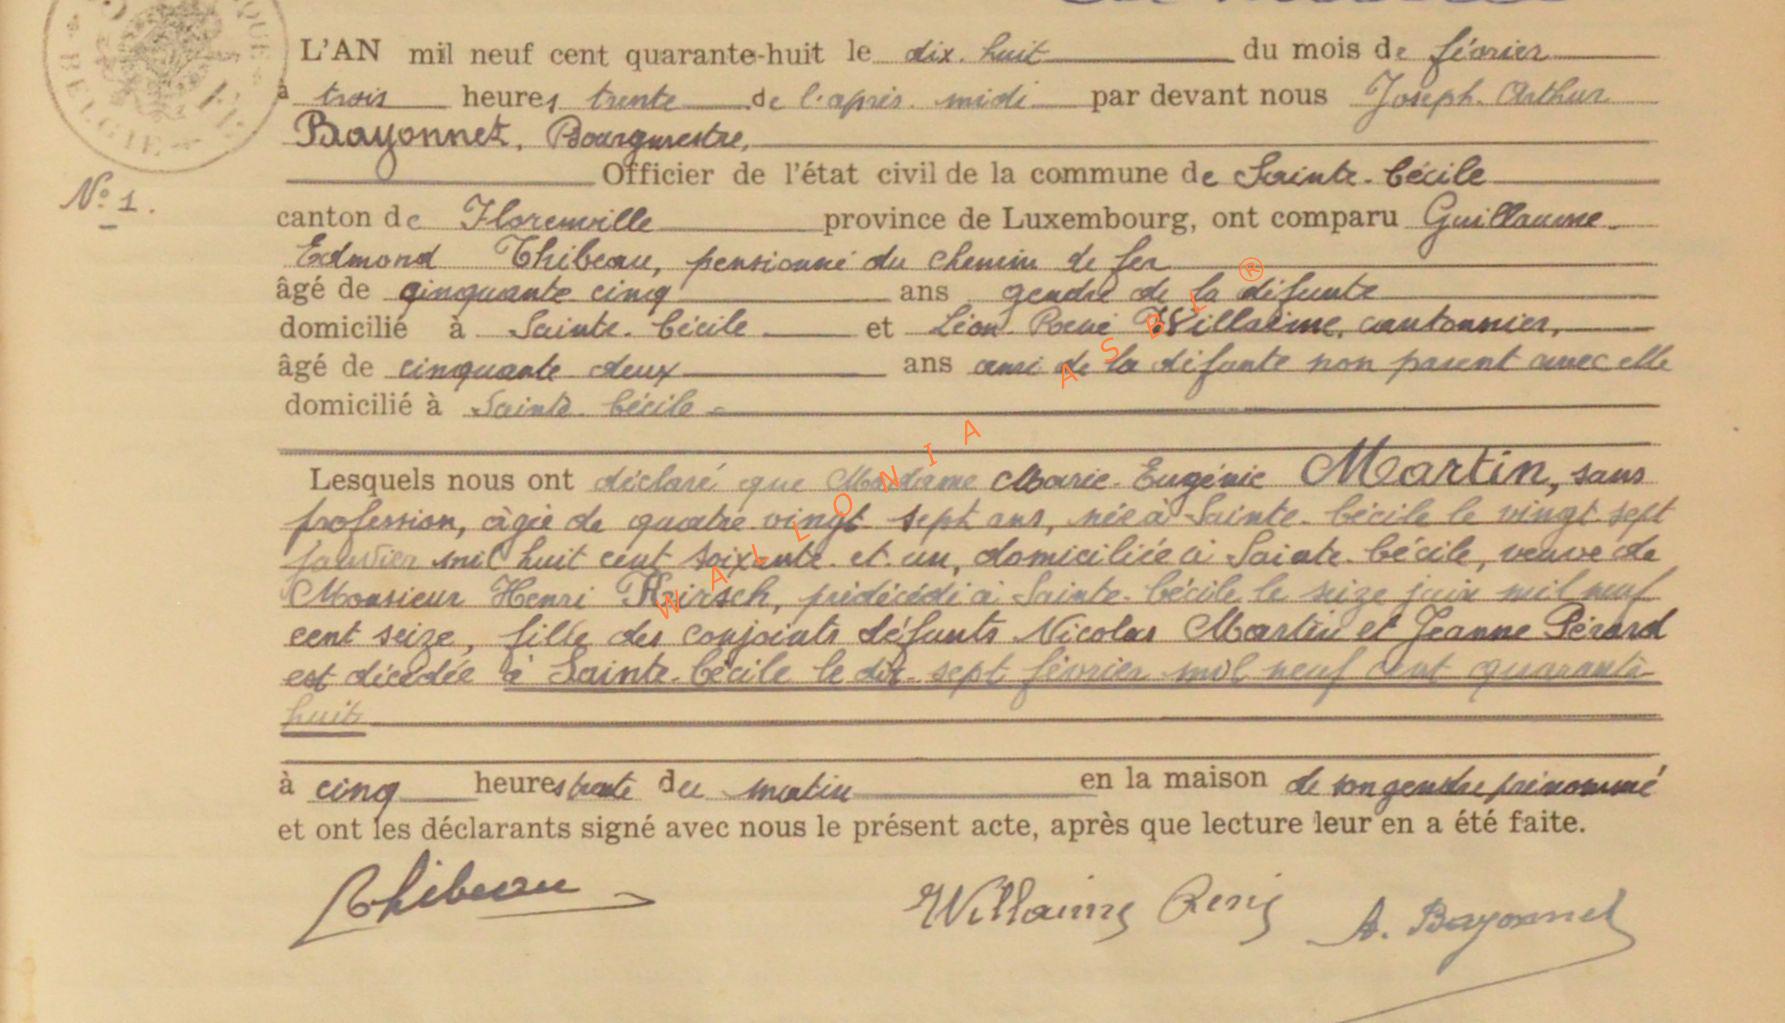 L'AN mil neuf cent quarante-huit le dix-huit du mois de février
à trois heures trente de l'après-midi par devant nous Joseph-Arthur
Bayonnet, Bourgmestre,
Officier de l'état civil de la commune de Sainte-Cécile
N° 1.
canton de Florenville province de Luxembourg, ont comparu Guillaume-
Edmond Thibeau, pensionné du chemin de fer
âgé de cinquante cinq ans gendre de la défunte
domicilié à Sainte-Cécile et Léon-René Willaime, cantonnier,
âgé de cinquante deux ans ami de la défunte non parent avec elle
domicilié à Sainte-Cécile
Lesquels nous ont déclaré que Madame Marie-Eugénie Martin, sans
profession, âgée de quatre vingt sept ans, née à Sainte-Cécile le vingt sept
janvier mil huit cent soixante et un, domiciliée à Sainte-Cécile, veuve de
Monsieur Henri Hirsch, prédécédé à Sainte-Cécile le seize juin mil neuf
cent seize, fille des conjoints défunts Nicolas Martin et Jeanne Pérard
est décédée à Sainte-Cécile le dix-sept février mil neuf cent quarante-
huit
à cinq heures trente du matin en la maison de son gendre prénommé
et ont les déclarants signé avec nous le présent acte, après que lecture leur en a été faite.
Thibeau Willaime René A. Bayonnet
WALLONIA ASBL ®
BELGIE